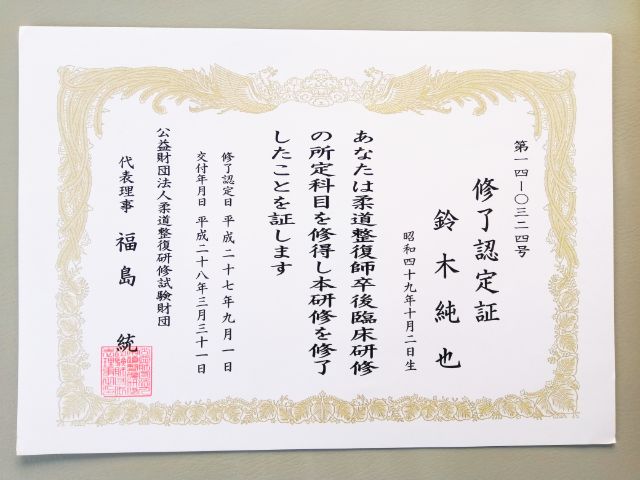 第一四－〇三二四号
修了認定証
鈴木純也
昭和四十九年十月二日生
あなたは柔道整復師卒後臨床研修
の所定科目を修得し本研修を修了
したことを証します
修了認定日 平成二十七年九月一日
交付年月日 平成二十八年三月三十一日
公益財団法人柔道整復研修試験財団
代表理事 福島 統